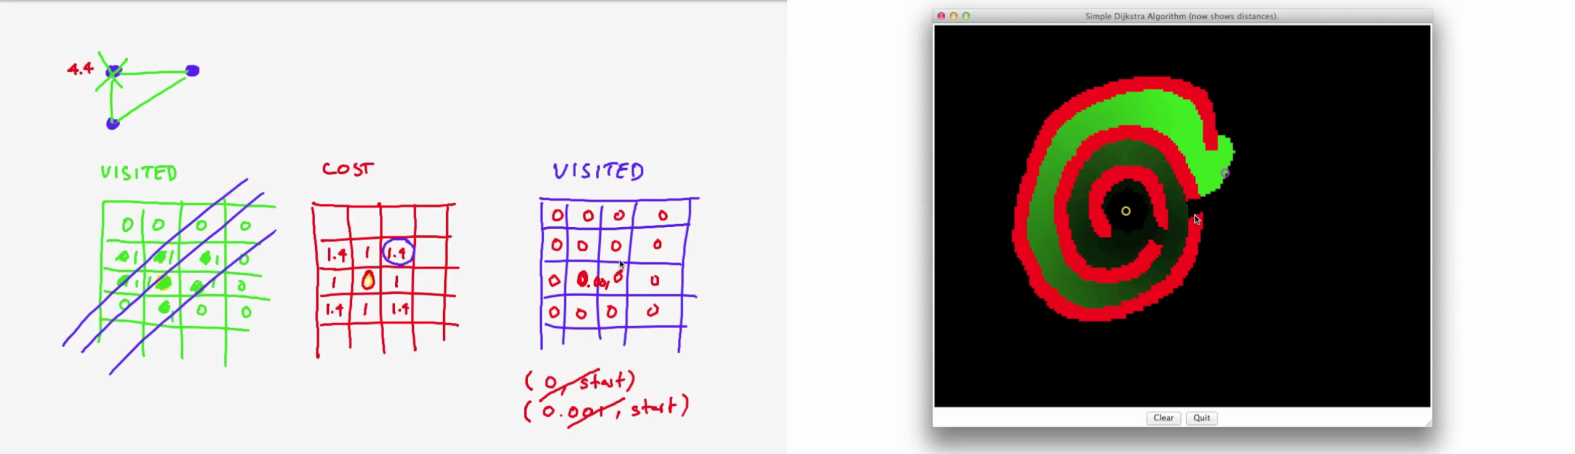 4.4
VISITED
0 0 0 0
1 1 1 0
1 1 1 0
0 0 0
COST
1.4 1 1.4
1 0 1
1.4 1 1.4
VISITED
0 0 0 0
0 0 0 0
0 0.001 0 0
0 0 0 0
(0, start)
(0.001, start)
Simple Dijkstra Algorithm (now shows distances).
Clear Quit